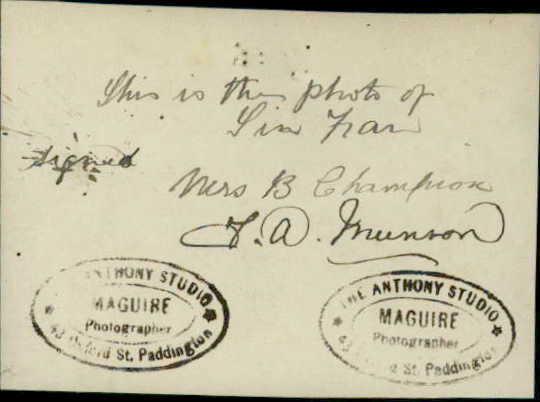 This is the photo of
Sin Fan
signed
Mrs B Champion
F. A. Munson
THE ANTHONY STUDIO
MAGUIRE
Photographer
43 Oxford St. Paddington
THE ANTHONY STUDIO
MAGUIRE
Photographer
43 Oxford St. Paddington